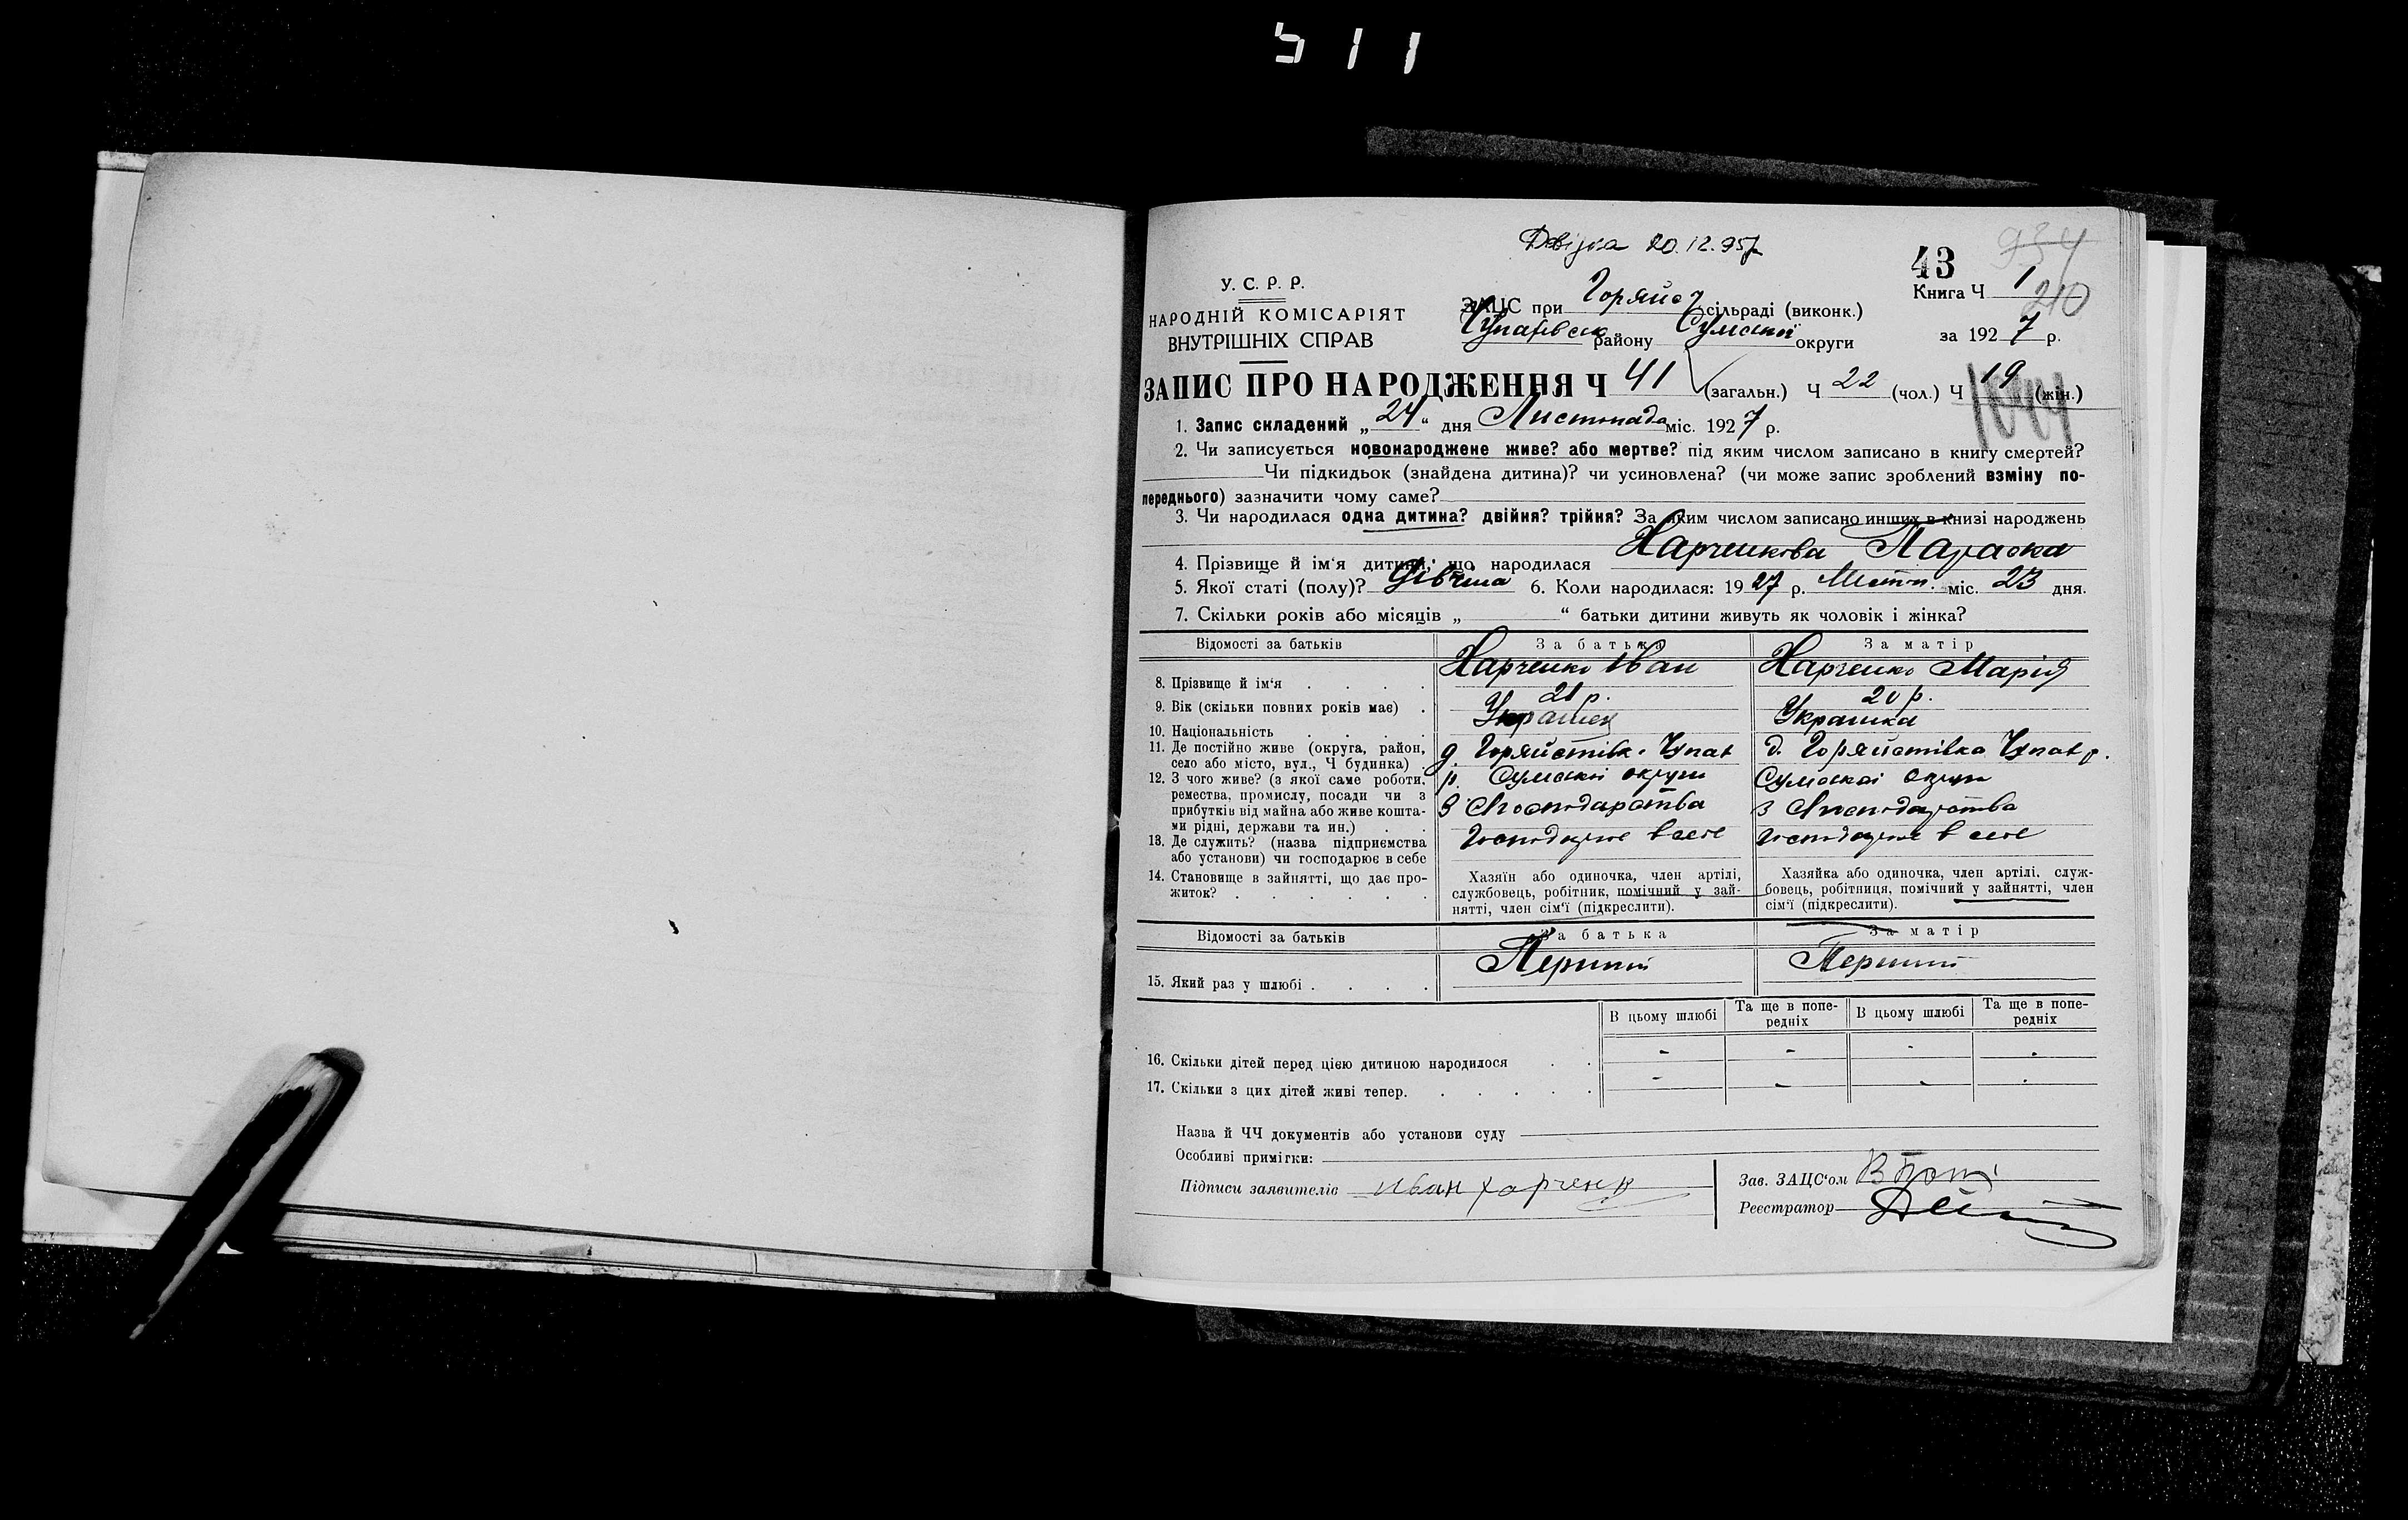 511
Довідка 20.12.957
43
934
У. С. Р. Р.
НАРОДНІЙ КОМІСАРІЯТ
ВНУТРІШНІХ СПРАВ
ЗАЦС при Горяйст сільраді (виконк.)
Чупахівськ району Сумської округи
Книга Ч 1
210
за 1927 р.
ЗАПИС ПРО НАРОДЖЕННЯ Ч 41 (загальн.) Ч 22 (чол.) Ч 19 (жін.)
1. Запис складений „24“ дня Листопада міс. 1927 р.
2. Чи записується новонароджене живе? або мертве? під яким числом записано в книгу смертей?
Чи підкидьок (знайдена дитина)? чи усиновлена? (чи може запис зроблений взміну по-
переднього) зазначити чому саме?
3. Чи народилася одна дитина? двійня? трійня? За яким числом записано инших в книзі народжень
4. Прізвище й ім‘я дитини, що народилася Харченкова Параска
5. Якої статі (полу)? Дівчина 6. Коли народилася: 1927 р. Листп. міс. 23 дня.
7. Скільки років або місяців „ “ батьки дитини живуть як чоловік і жінка?
Відомості за батьків За батька За матір
8. Прізвище й ім‘я . . . . Харченко Іван Харченко Марія
9. Вік (скільки повних років має) . 21 р. 20 р.
10. Національність . . . . Українец Українка
11. Де постійно живе (округа, район,
село або місто, вул., Ч будинка) .
д. Горяйстівк. Чупах
р. Сумської округи
д. Горяйстівка Чупах р.
Сумської округи
12. З чого живе? (з якої саме роботи,
ремества, промислу, посади чи з
прибутків від майна або живе кошта-
ми рідні, держави та ин.) . .
З Господарства
з Господарства
13. Де служить? (назва підприємства
або установи) чи господарює в себе
Господарює в селі
Господарює в селі
14. Становище в зайнятті, що дає про-
житок? . . . . . .
Хазяїн або одиночка, член артілі,
службовець, робітник, помічний у зай-
нятті, член сім‘ї (підкреслити).
Хазяйка або одиночка, член артілі, служ-
бовець, робітниця, помічний у зайнятті, член
сім‘ї (підкреслити).
Відомості за батьків За батька За матір
15. Який раз у шлюбі . . . . Перший Перший
В цьому шлюбі Та ще в попе-
редніх В цьому шлюбі Та ще в попе-
редніх
16. Скільки дітей перед цією дитиною народилося . . - - - -
17. Скільки з цих дітей живі тепер. . . . . . - - - -
Назва й ЧЧ документів або установи суду
Особливі примітки:
Підписи заявителів Иван Харченк
Зав. ЗАЦС‘ом
Реєстратор